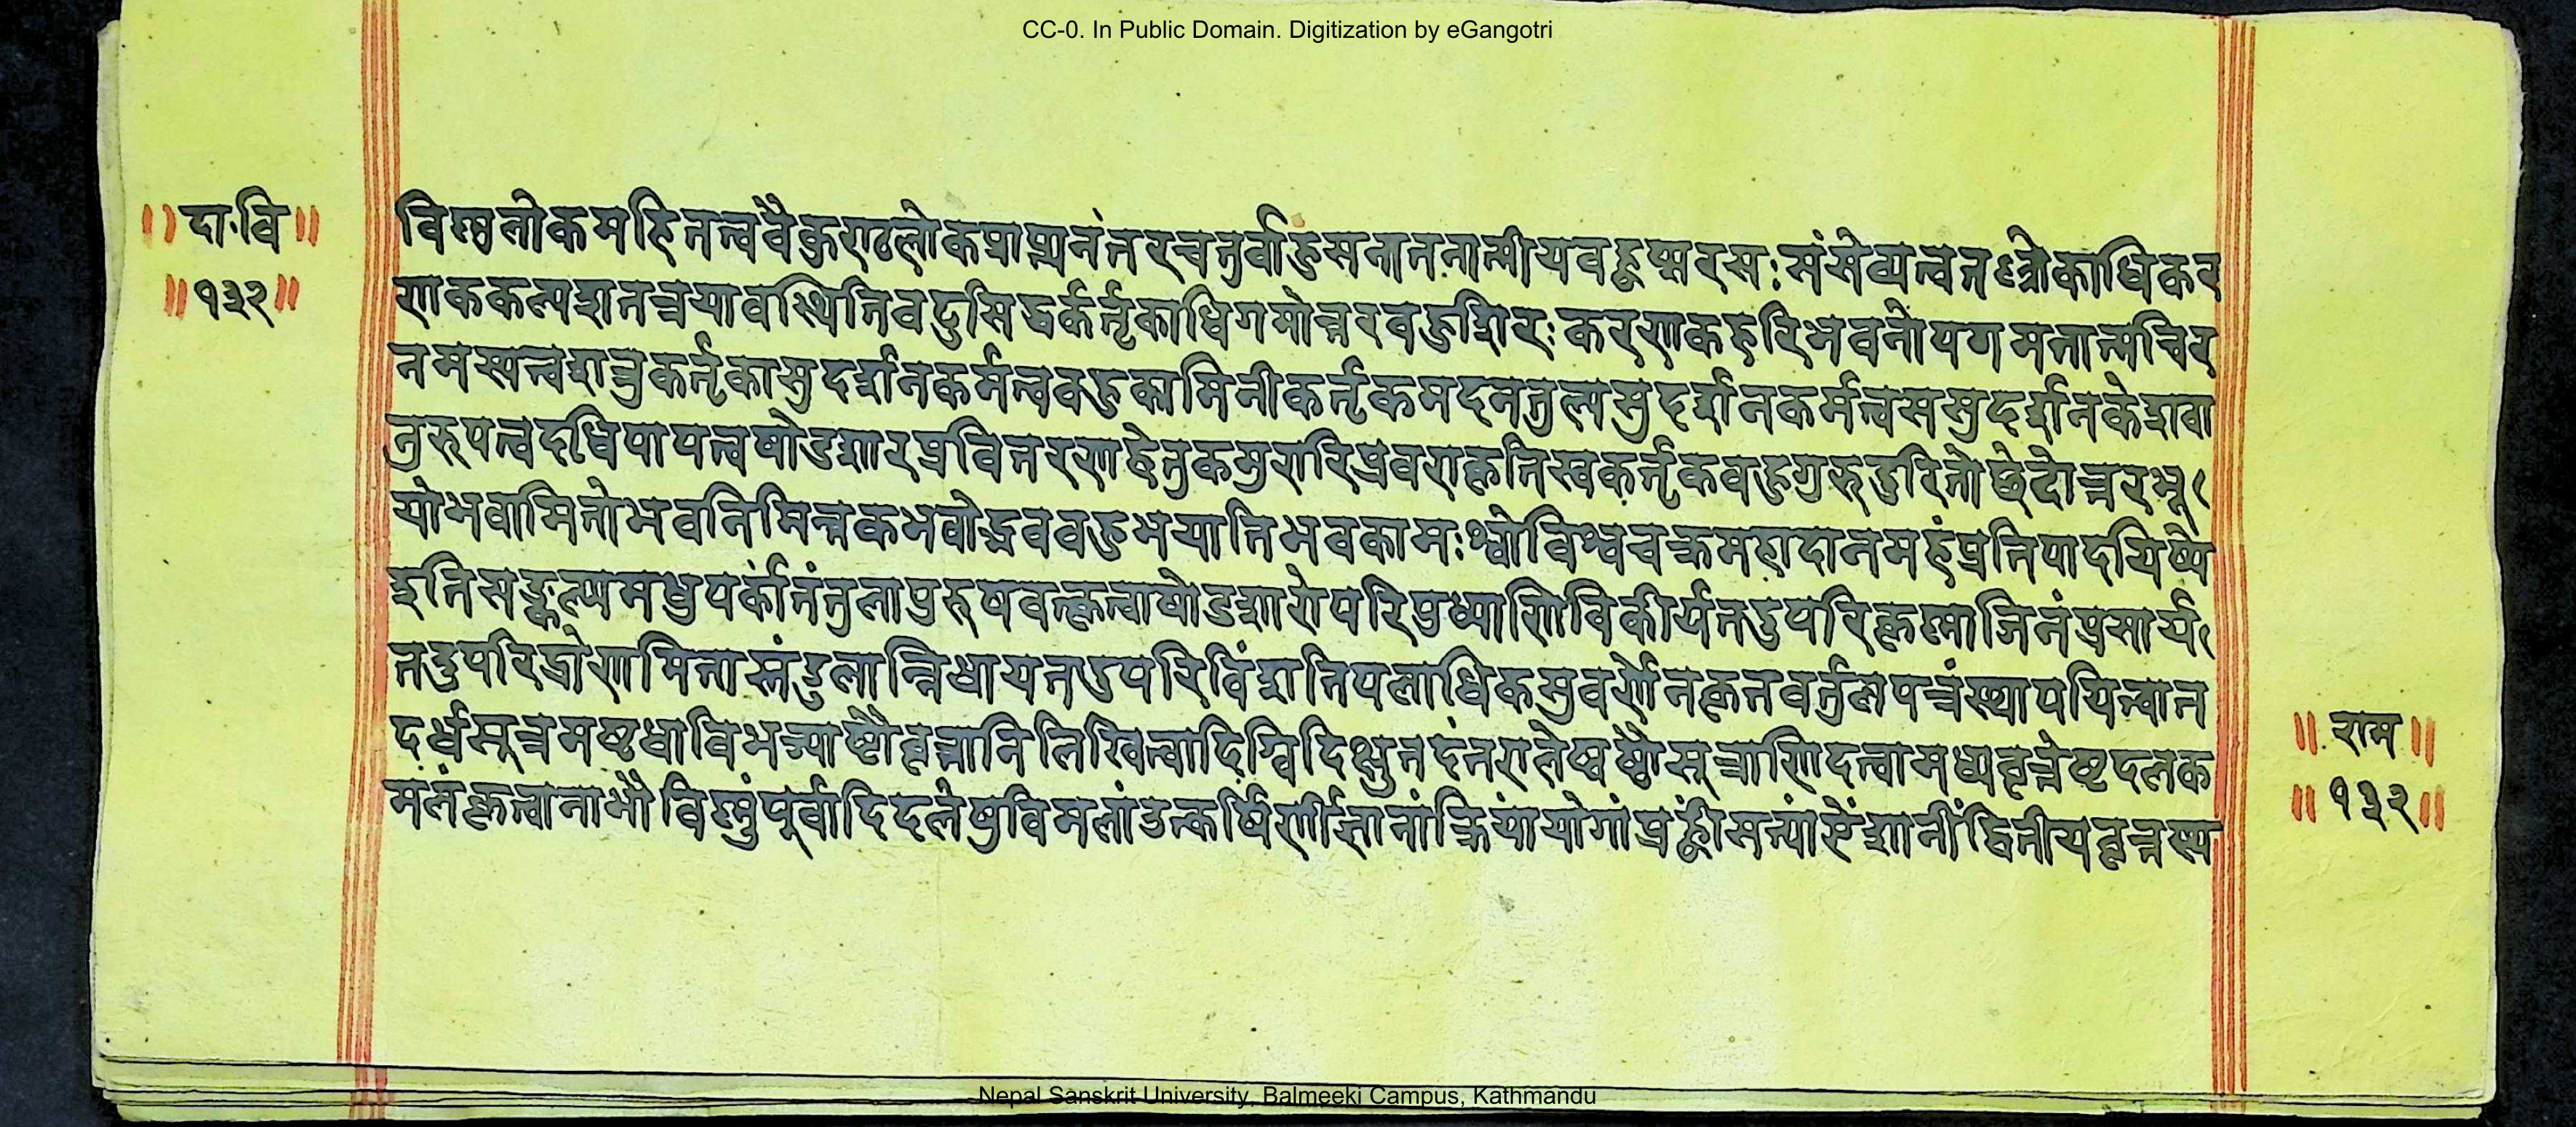 CC-0. In Public Domain. Digitization by eGangotri
॥दा·वि॥
॥१३२॥
विष्णुलोकमहितत्त्ववैकुण्ठलोकप्राप्त्यनंतरचतुर्वाहुसनातनात्मीयवहुप्सरसःसंसेव्यत्त्वतण्त्रोकाधिकर
णककल्पशतत्रयावस्थितिवटुसिद्धकर्तृकाधिगमोत्तरवहुशिरःकरणकहरिभवनोपगमनात्मचिर
नमस्यत्त्वशत्रुकर्तृकासुदर्शनकर्मत्त्ववहुकामिनीकर्तृकमदनतुल्यसुदर्शनकर्मत्त्वससुदर्शनकेशवा
तुरूपत्त्वदधिपापत्त्वषोडशारप्रवितरणहेतुकमुरारिप्रवराकृतिस्वकर्तृकवहुगुरुदुरितोछेदोत्तरभू
योभवामितोभवनिमित्तकभवोद्भववहुभयातिभवकामःश्वोविश्वचक्रमहादानमहंप्रतिपादयिष्ये
इतिसङ्कल्प्यमधुपर्कांतंतुलापुरुषवत्कृत्वाषोडशारोपरिपुष्पाणिविकीर्यतदुपरिकृष्णाजिनंप्रसार्य
तदुपरिद्रोणमितास्तंडुलान्निधायतदुपरिविंशतिपलाधिकसुवर्णेनकृतवर्तुलपत्रंस्थापयित्वात
दर्धसूत्रमष्टधाविभज्याष्टौवृत्तानिलिखित्वादिग्विदिक्षुतदंतरालेष्वष्टौसूत्राणिदत्वामध्यवृत्तेष्टदलक
मलंकृत्वानाभौविष्णुंपूर्वादिदलेषुविमलांउत्कर्षिणींज्ञानांक्रियांयोगांप्रह्वींसत्यांसेंशानींद्वितीयवृत्तस्य
॥राम॥
॥१३२॥
Nepal Sanskrit University, Balmeeki Campus, Kathmandu